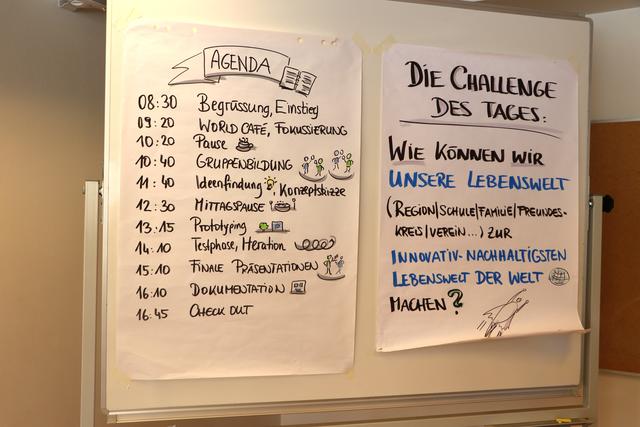 AGENDA
08:30 Begrüssung, Einstieg
09:20 WORLD CAFÉ, FOKUSSIERUNG
10:20 Pause
10:40 GRUPPENBILDUNG
11:40 Ideenfindung, Konzeptskizze
12:30 MITTAGSPAUSE
13:15 Prototyping
14:10 Testphase, Iteration
15:10 FINALE PRÄSENTATIONEN
16:10 DOKUMENTATION
16:45 CHECK OUT
DIE CHALLENGE
DES TAGES:
WIE KÖNNEN WIR
UNSERE LEBENSWELT
(REGION/SCHULE/FAMILIE/FREUNDES-
KREIS/VEREIN...) ZUR
INNOVATIV-NACHHALTIGSTEN
LEBENSWELT DER WELT
MACHEN?